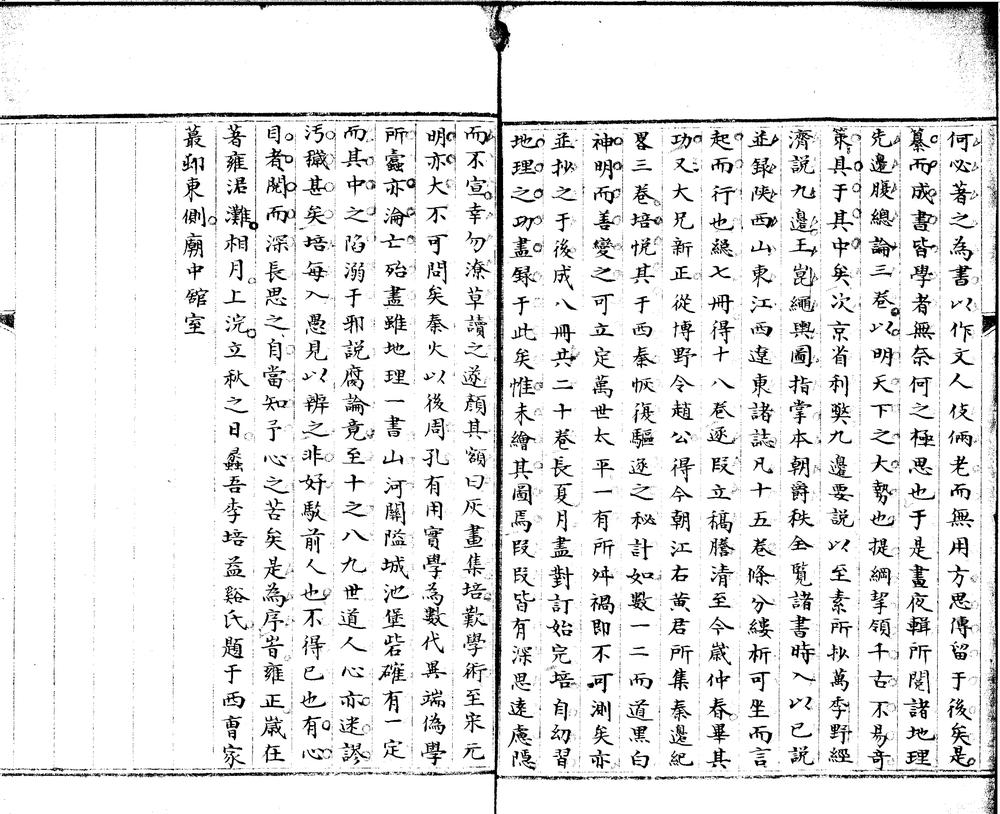 何必著之為書以作文人伎倆老而無用方思傳留于後矣是
纂而成書皆學者無奈何之極思也于是晝夜輯所閱諸地理
先邊腹總論三卷以明天下之大勢也提綱挈領千古不易奇
策具于其中矣次京省利獘九邊要說以至素所抄萬季野經
濟說九邊王崑繩輿圖指掌本朝爵秩全覽諸書時入以已說
並録陝西山東江西遼東諸誌凡十五卷條分縷析可坐而言
起而行也緫七冊得十八卷逐段立稿謄清至今歲仲春畢其
功又大兄新正從博野令趙公得今朝江右黄君所集秦邊紀
畧三卷培悅其于西秦恢復驅逐之秘計如數一二而道黑白
神明而善變之可立定萬世太平一有所舛禍即不可測矣亦
並抄之于後成八冊共二十卷長夏月盡對訂始完培自幼習
地理之功盡録于此矣惟未繪其圖焉段段皆有深思遠慮隱
而不宣幸勿潦草讀之遂顏其額曰灰畫集培歎學術至宋元
明亦大不可問矣秦火以後周孔有用實學為數代異端偽學
所蠹亦淪亡殆盡雖地理一書山河關隘城池堡砦確有一定
而其中之陷溺于邪說腐論竟至十之八九世道人心亦迷謬
汚穢甚矣培每入愚見以辨之非好駁前人也不得已也有心
目者閱而深長思之自當知予心之苦矣是為序旹雍正歲在
著雍涒灘相月上浣立秋之日蠡吾李培益谿氏題于西曹家
蕞邸東側廟中館室